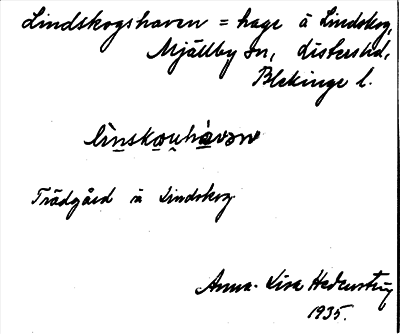 Lindskogshaven = hage å Lindskog,
Mjällby sn, Listers hd,
Blekinge l.
lìnskou̯hàvən
Trädgård i Lindskog
Anna-Lisa Hedenstig
1935.